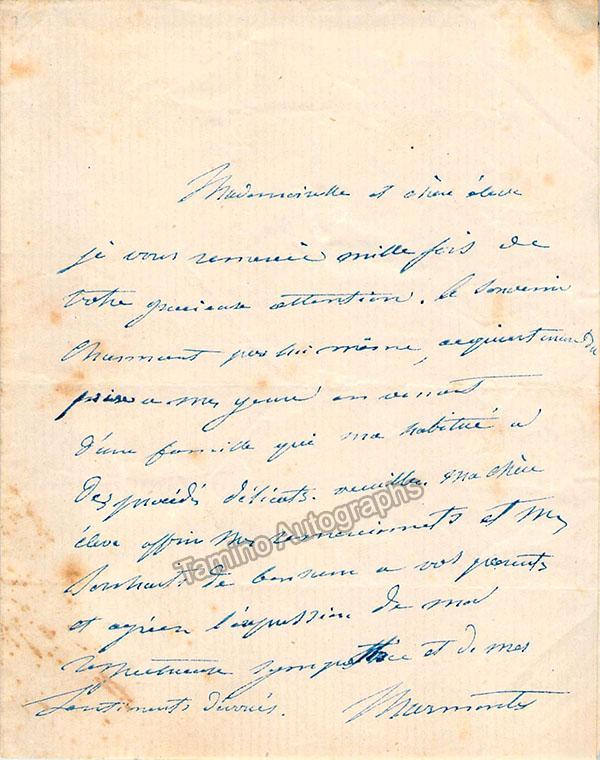 Mademoiselle et chère élève
je vous remercie mille fois de
votre gracieuse attention. le souvenir
charmant par lui même, acquiert encore du
prix a mes yeux en venant
d'une famille qui m'a habitué a
des procédés délicats. veuillez ma chère
élève offrir mes remerciements et mes
souhaits de bonheur a vos parents
et agréer l'expression de ma
respectueuse sympathie et de mes
sentiments dévoués. Marmontel
Tamino Autographs